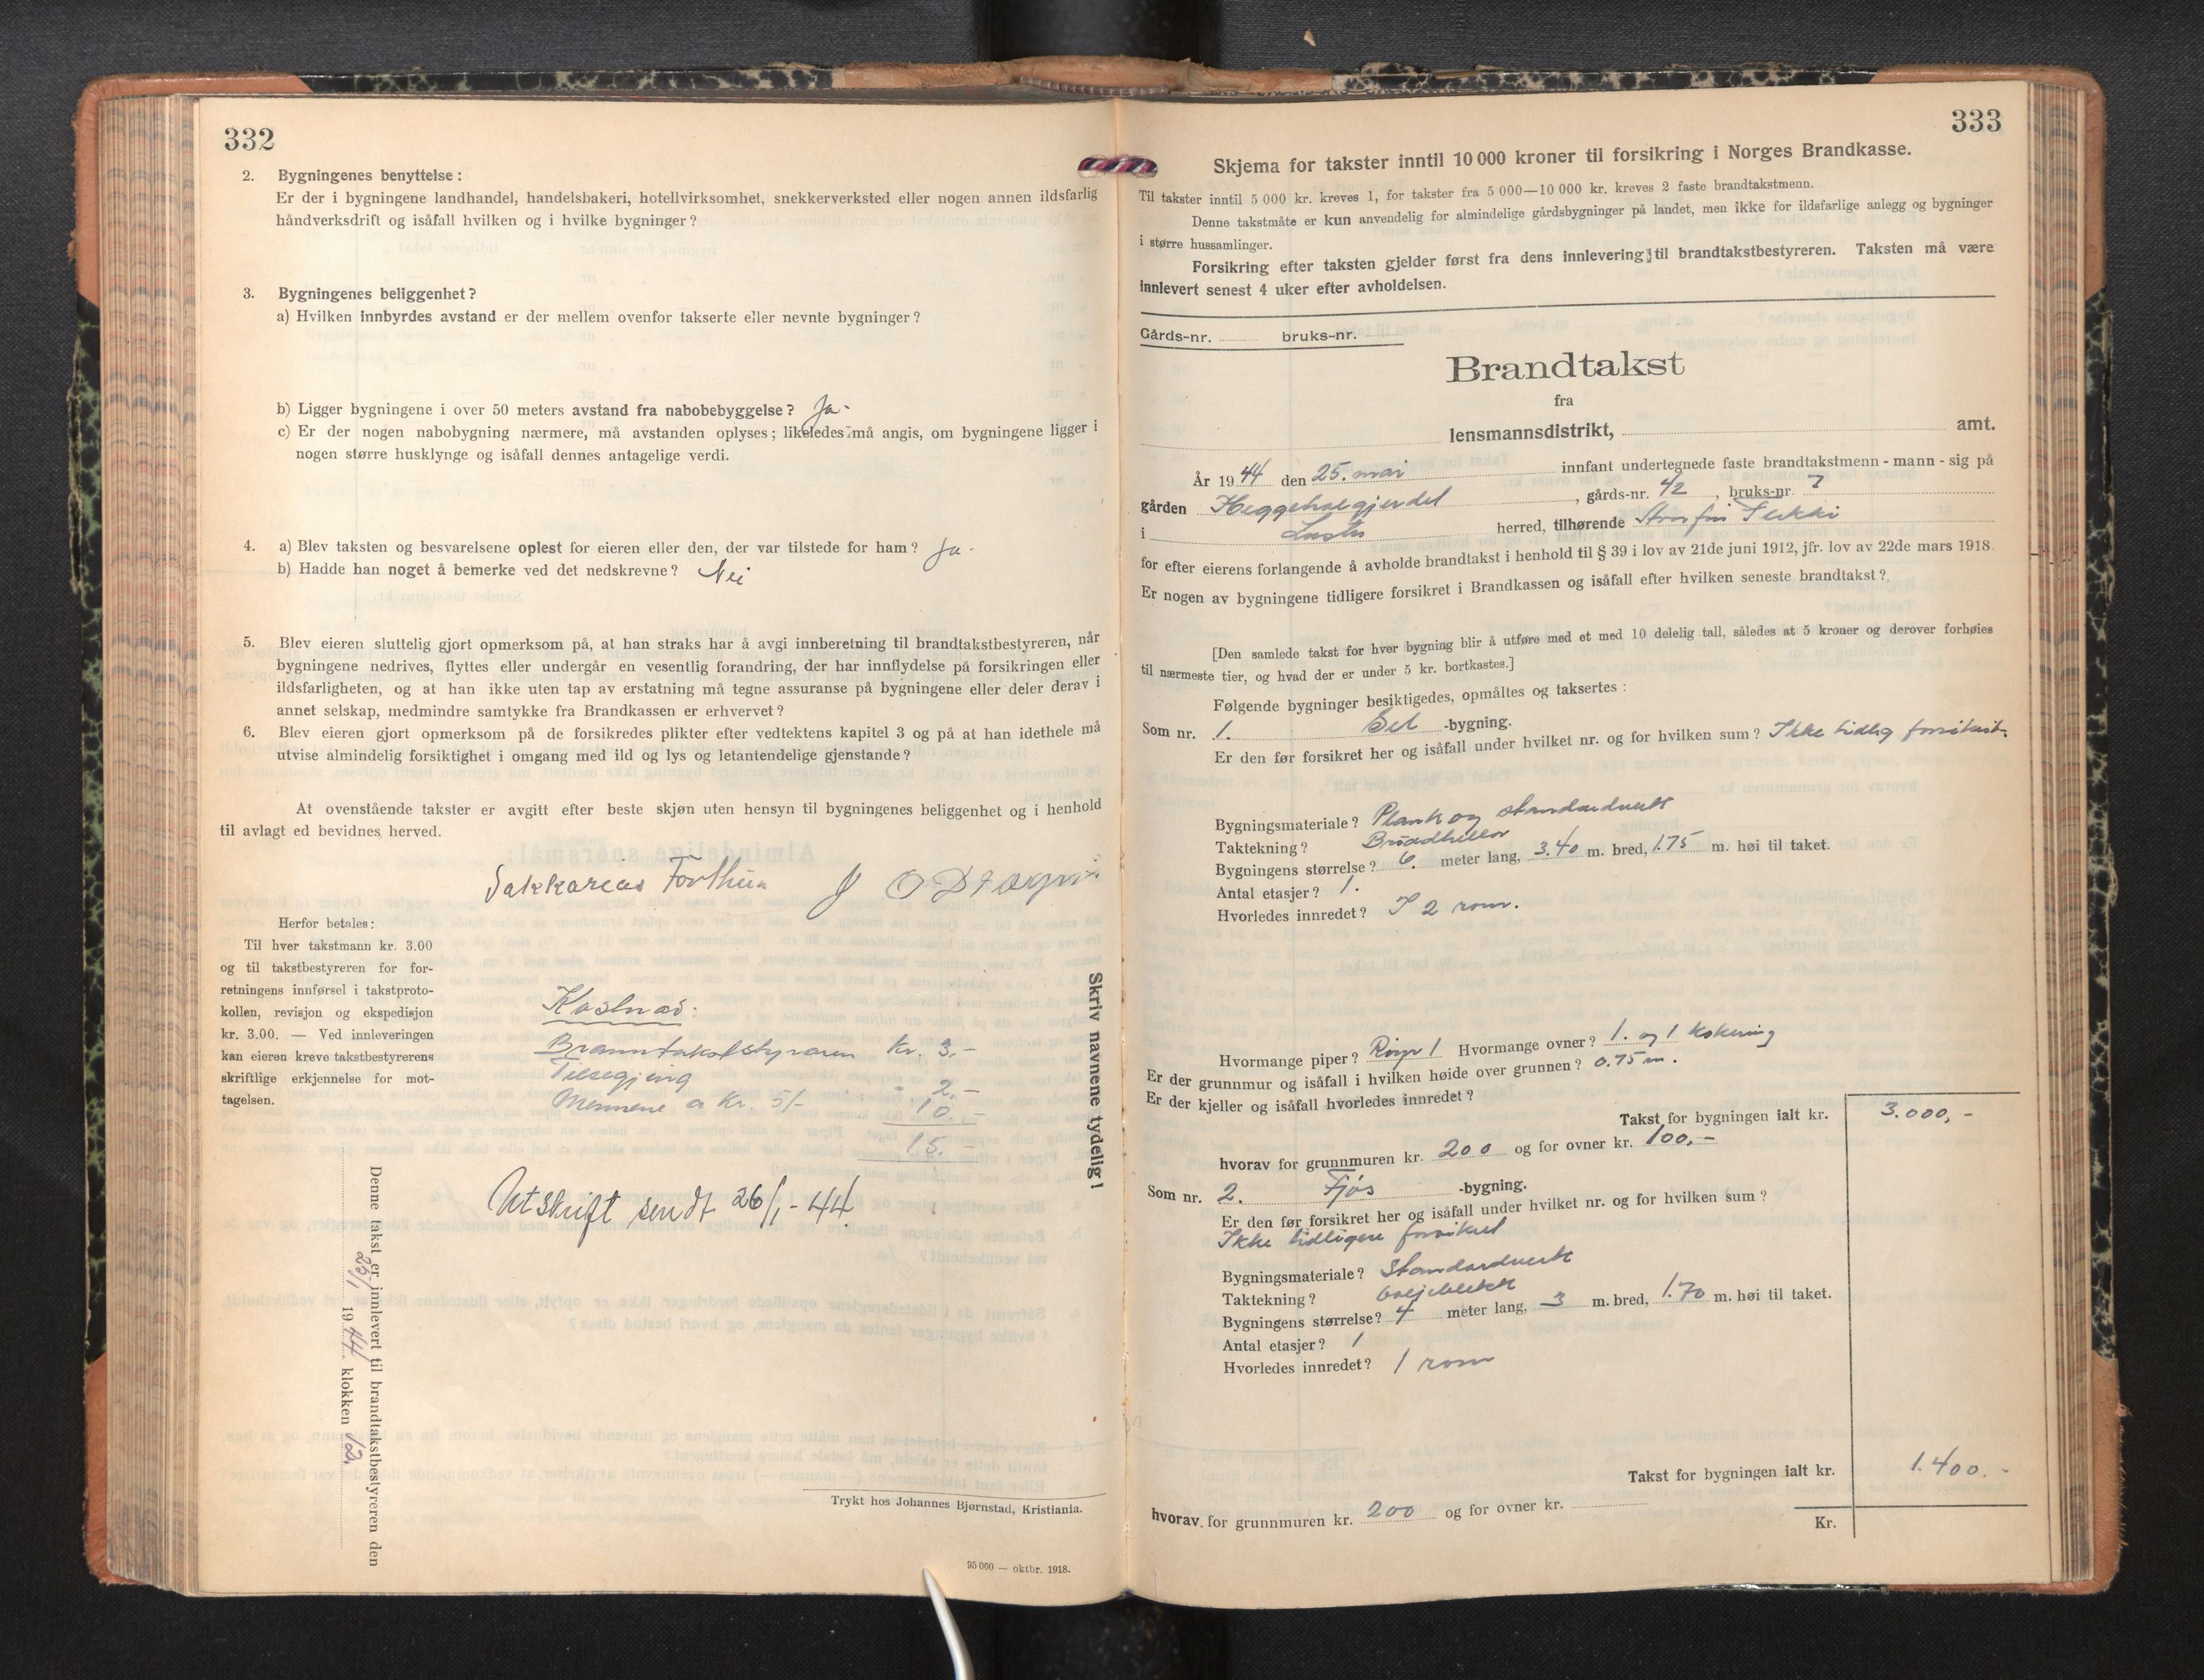 332
2. Bygningenes benyttelse:
Er der i bygningene landhandel, handelsbakeri, hotellvirksomhet, snekkerverksted eller nogen annen ildsfarlig
håndverksdrift og isåfall hvilken og i hvilke bygninger?
3. Bygningenes beliggenhet?
a) Hvilken innbyrdes avstand er der mellem ovenfor takserte eller nevnte bygninger?
b) Ligger bygningene i over 50 meters avstand fra nabobebyggelse? Ja-
c) Er der nogen nabobygning nærmere, må avstanden oplyses; likeledes må angis, om bygningene ligger i
nogen større husklynge og isåfall dennes antagelige verdi.
4. a) Blev taksten og besvarelsene oplest for eieren eller den, der var tilstede for ham? Ja-
b) Hadde han noget å bemerke ved det nedskrevne? Nei
5. Blev eieren sluttelig gjort opmerksom på, at han straks har å avgi innberetning til brandtakstbestyreren, når
bygningene nedrives, flyttes eller undergår en vesentlig forandring, der har innflydelse på forsikringen eller
ildsfarligheten, og at han ikke uten tap av erstatning må tegne assuranse på bygningene eller deler derav i
annet selskap, medmindre samtykke fra Brandkassen er erhvervet?
6. Blev eieren gjort opmerksom på de forsikredes plikter efter vedtektens kapitel 3 og på at han idethele må
utvise almindelig forsiktighet i omgang med ild og lys og letantendelige gjenstande?
At ovenstående takster er avgitt efter beste skjøn uten hensyn til bygningenes beliggenhet og i henhold
til avlagt ed bevidnes herved.
Sakkarias Forthun
Herfor betales:
Til hver takstmann kr. 3.00
og til takstbestyreren for for-
retningens innførsel i takstproto-
kollen, revisjon og ekspedisjon
kr. 3.00. — Ved innleveringen
kan eieren kreve takstbestyrerens
skriftlige erkjennelse for mot-
tagelsen.
Kostnad:
Branntakstbestyraren Kr. 3.-
Tilsegjing - 2.-
Mennene a Kr. 5/- 10.-
15.-
Utskrift sendt 26/1-44.
Skriv navnene tydelig!
Denne takst er innlevert til brandtakstbestyreren den
25/1 1944 klokken 12.
Trykt hos Johannes Bjørnstad, Kristiania.
95 000 — oktbr. 1918.
333
Skjema for takster inntil 10 000 kroner til forsikring i Norges Brandkasse.
Til takster inntil 5 000 kr. kreves 1, for takster fra 5 000—10 000 kr. kreves 2 faste brandtakstmenn.
Denne takstmåte er kun anvendelig for almindelige gårdsbygninger på landet, men ikke for ildsfarlige anlegg og bygninger
i større hussamlinger.
Forsikring efter taksten gjelder først fra dens innlevering til brandtakstbestyreren. Taksten må være
innlevert senest 4 uker efter avholdelsen.
Gårds-nr. bruks-nr.
Brandtakst
fra
lensmannsdistrikt, amt.
År 1944 den 25. mai innfant undertegnede faste brandtakstmenn - mann - sig på
gården Heggeholegjerdet, gårds-nr. 42, bruks-nr. 7
i Luster herred, tilhørende Arnfin Sekki
for efter eierens forlangende å avholde brandtakst i henhold til § 39 i lov av 21de juni 1912, jfr. lov av 22de mars 1918.
Er nogen av bygningene tidligere forsikret i Brandkassen og isåfall efter hvilken seneste brandtakst?
[Den samlede takst for hver bygning blir å utføre med et med 10 delelig tall, således at 5 kroner og derover forhøies
til nærmeste tier, og hvad der er under 5 kr. bortkastes.]
Følgende bygninger besiktigedes, opmåltes og taksertes:
Som nr. 1. Sel -bygning.
Er den før forsikret her og isåfall under hvilket nr. og for hvilken sum? Ikke tidlig forsikret.
Bygningsmateriale? Plank og standardverk
Taktekning? Brodheller
Bygningens størrelse? 6. meter lang, 3.40 m. bred, 1.75 m. høi til taket.
Antal etasjer? 1.
Hvorledes innredet? I 2 rom.
Hvormange piper? Røyr 1 Hvormange ovner? 1. og 1 kokering
Er der grunnmur og isåfall i hvilken høide over grunnen? 0.75 m.
Er der kjeller og isåfall hvorledes innredet?
Takst for bygningen ialt kr. 3.000,-
hvorav for grunnmuren kr. 200 og for ovner kr. 100,-
Som nr. 2. Fjøs -bygning.
Er den før forsikret her og isåfall under hvilket nr. og for hvilken sum?
Ikke tidligere forsikret
Bygningsmateriale? Standardverk
Taktekning? bølgjeblekk
Bygningens størrelse? 4 meter lang, 3 m. bred, 1.70 m. høi til taket.
Antal etasjer? 1
Hvorledes innredet? 1 rom
Takst for bygningen ialt kr. 1.400.-
hvorav for grunnmuren kr. 200 og for ovner kr.
Kr.